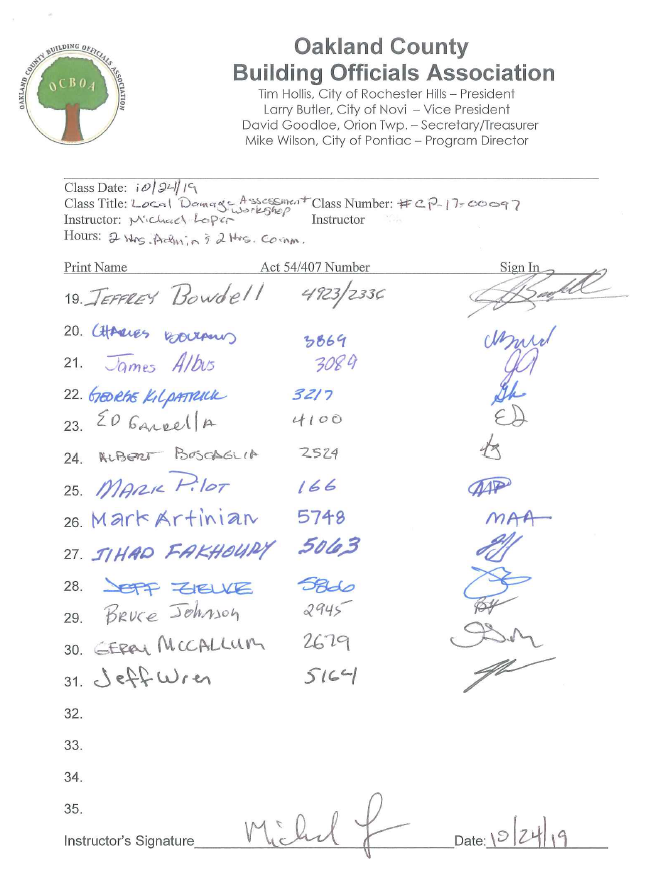 OAKLAND COUNTY BUILDING OFFICIALS ASSOCIATION
OCBOA
Oakland County
Building Officials Association
Tim Hollis, City of Rochester Hills – President
Larry Butler, City of Novi – Vice President
David Goodloe, Orion Twp. – Secretary/Treasurer
Mike Wilson, City of Pontiac – Program Director
Class Date: 10/24/19
Class Title: Local Damage Assessment Workshop Class Number: #CP-17-00097
Instructor: Michael Instructor
Hours: 2 Hrs. Admin & 2 Hrs. Comm.
Print Name Act 54/407 Number Sign In
19. JEFFREY Bowdell 4923/2336
20. CHARLES 3869
21. James Albus 3089
22. GEORGE KILPATRICK 3217 GK
23. ED 4100 ED
24. ALBERT BOSCAGLIA 2524
25. MARK PILOT 166 MP
26. Mark Artinian 5748 MAA
27. JIHAD FAKHOURY 5063
28. JEFF ZIELKE 5866
29. Bruce Johnson 2945
30. GERRY MCCALLUM 2679
31. Jeff Wren 5164
32.
33.
34.
35.
Instructor's Signature Date: 10/24/19